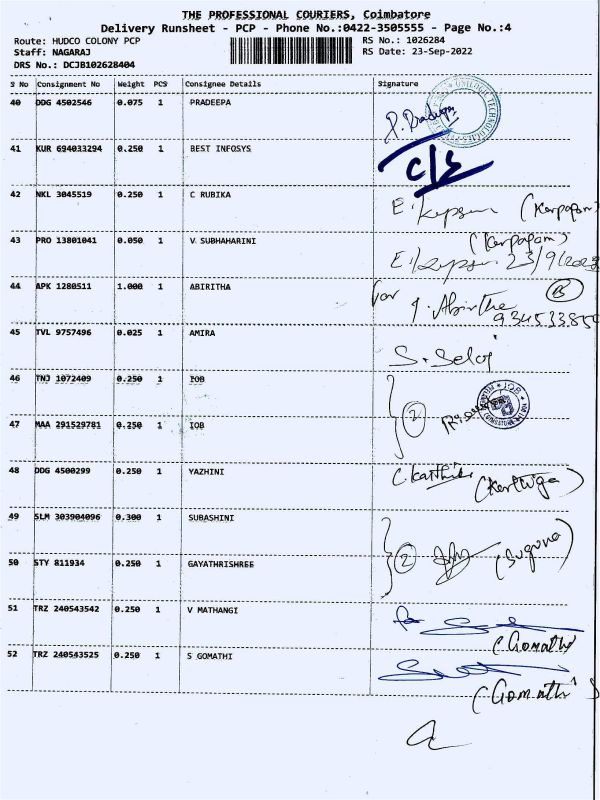 THE PROFESSIONAL COURIERS, Coimbatore
Delivery Runsheet - PCP - Phone No.:0422-3505555 - Page No.:4
Route: HUDCO COLONY PCP
Staff: NAGARAJ
DRS No.: DCJB102628404
RS No.: 1026284
RS Date: 23-Sep-2022
S No Consignment No Weight PCS Consignee Details Signature
40 DDG 4502546 0.075 1 PRADEEPA P. Pradeepa
41 KUR 694033294 0.250 1 BEST INFOSYS C/S
42 NKL 3045519 0.250 1 C RUBIKA E. (Karpagam)
43 PRO 13801041 0.050 1 V SUBHAHARINI (Karpagam)
E. 23/9/2022
44 APK 1280511 1.000 1 ABIRITHA for J. Abirtha
45 TVL 9757496 0.025 1 AMIRA S. Selvi
46 TNJ 1072409 0.250 1 IOB 2
IOB
47 MAA 291529781 0.250 1 IOB
48 DDG 4500299 0.250 1 YAZHINI C. Karthika (Karthiga)
49 SLM 303904096 0.300 1 SUBASHINI 2 (Suguna)
50 STY 811934 0.250 1 GAYATHRISHREE
51 TRZ 240543542 0.250 1 V MATHANGI for (Gomathi
52 TRZ 240543525 0.250 1 S GOMATHI (Gomathi)